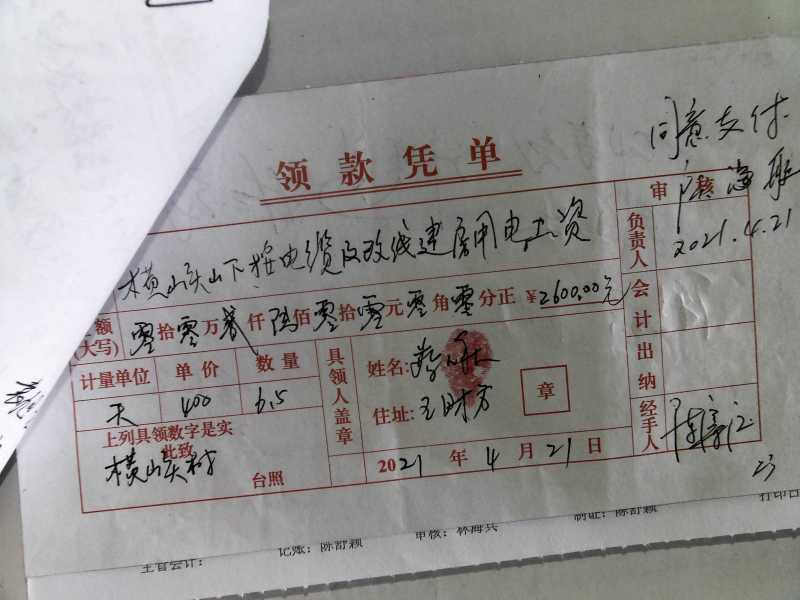 同意支付
领款凭单
审核
2021.4.21
横山头山下接电缆及改线建房用电工资
负责人
额(大写) 零拾零万贰仟陆佰零拾零元零角零分正 ¥2600.00元
会计
计量单位 单价 数量
天 400 6.5
具领人盖章
姓名:
住址:
章
出纳
上列具领数字是实
此致
横山头村
台照
2021年4月21日
经手人
23
主管会计: 记账:陈舒颖 审核:林海兵 制证:陈舒颖 打印日